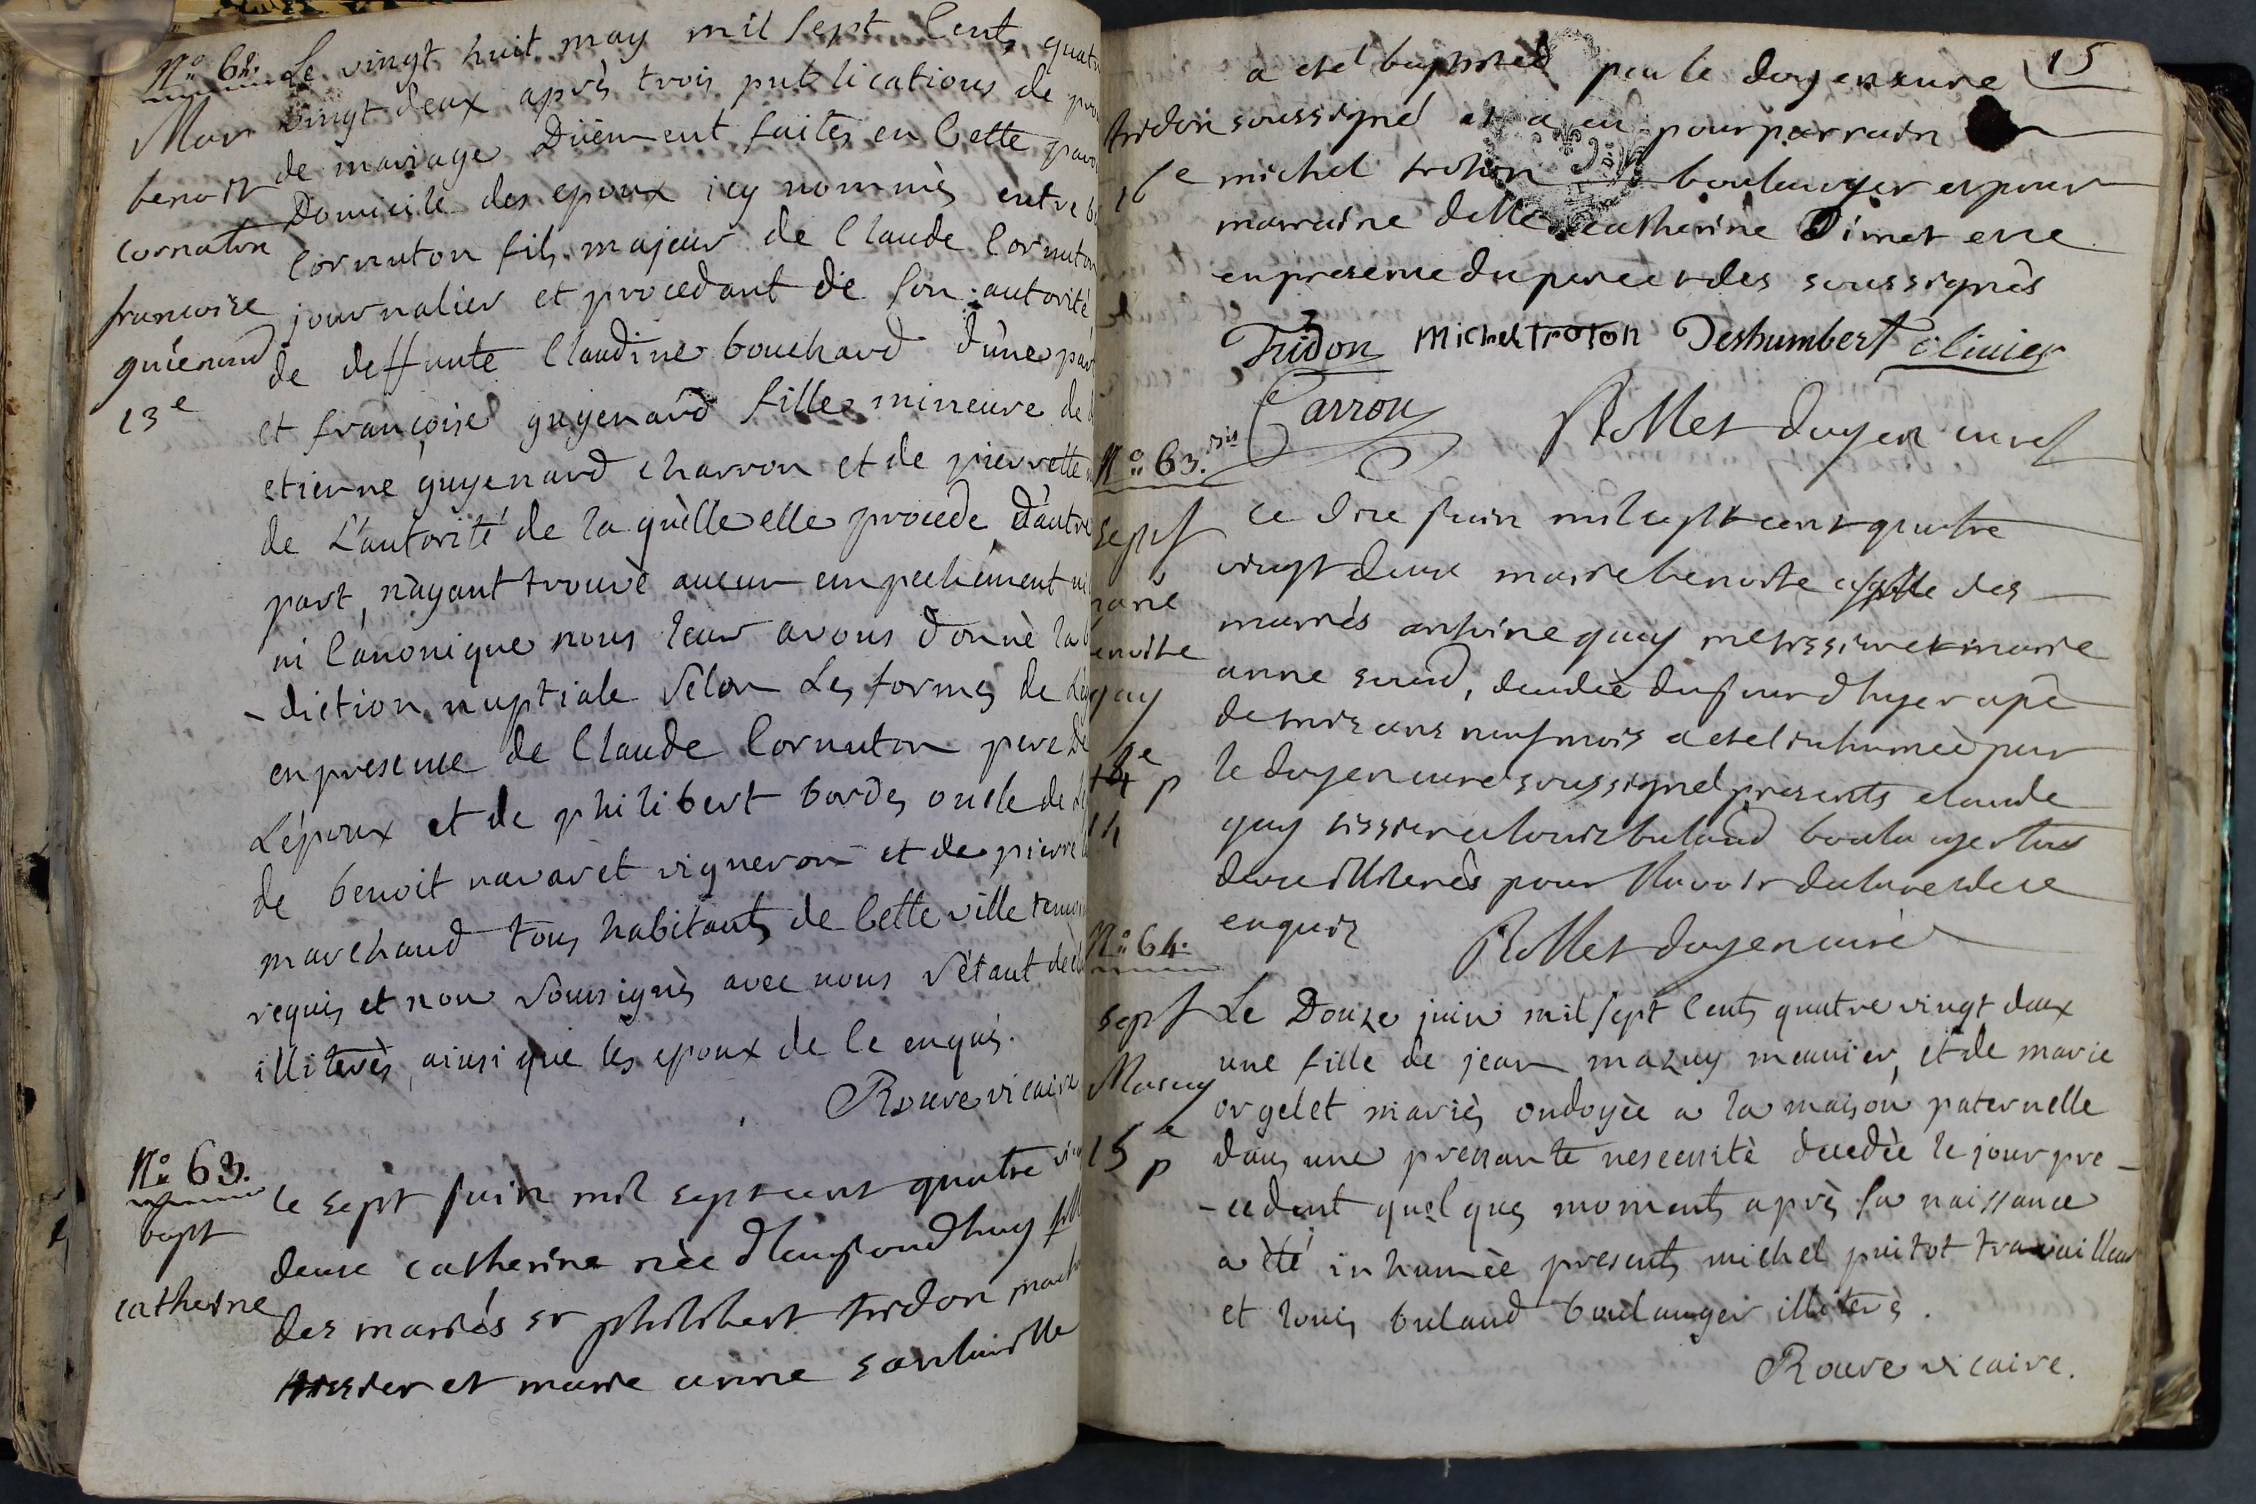 N° 62. Le vingt huit may mil sept Cents quatr
Mar vingt deux après trois publications de pro
de mariage Düement faites en Cette paro
benoit Domicile des epoux icy nommès entre be
cornuton Cornuton fils majeur de Claude Cornuton
francoise journalier et procedant de son autorité,
guienard de deffunte Claudine bouchard d'une part
13e et françoise guyenard fille mineure de
etienne guyenard charron et de pierrette
de L'autorité de la quèlle elle procede, D'autre
part, n'ayant trouvé aucun empechement
ni Canonique nous leur avons donnè la b
- diction nuptiale sèlon Les formes de L'eg
en presence de Claude Cornuton pere De
L'époux et de philibert bordes oncle de
de benoit navaret vigneron et de pierre
marchand tous habitants de Cette ville temoi
requis et non soussignès avec nous s'étant
illiterès, ainsi que les epoux de Ce enquis.
Rouve vicaire
N° 63.
bapt
catherine
le sept juin mil sept cent quatre vin
deux catherine nèe d'aujourdhuy fill
des mariés sr philibert tridon march
et marie anne
15
a eté baptisée par le doyen curé
tridon soussigné et a eu pour parrain
16e michel troton boulanger et pour
marraine delle catherine Dimet
en presence du pere et des soussignès
Tridon Michel Troton Deshumbert olivier
Carron Rollet doyen curé
N° 63. bis
sept
marie
benoite
gay
14e p
14
Le dix juin mil sept cent quatre
vingt deux marie benoite fille des
mariés antoine guay et marie
anne suard, decedèe du jour d'hyer agèe
de trois ans neuf mois a eté inhumèe par
le doyen curé soussigné presents claude
guay tissier et louis buland boulanger tous
deux illiterès pour l'avoir declaré de ce
enquis Rollet doyen curé
N° 64.
sept
Mazuy
15e p
Le Douze juin mil sept Cents quatre vingt deux
une fille de jean mazuy meunier, et de marie
orgelet mariès ondoyèe a la maison paternelle
dans une pressante nescessitè decedèe le jour pre -
- cedent quelques moments après sa naissance
a èté inhumèe presents michel puitot travailleur
et louis buland boulanger illiterès.
Rouve vicaire.